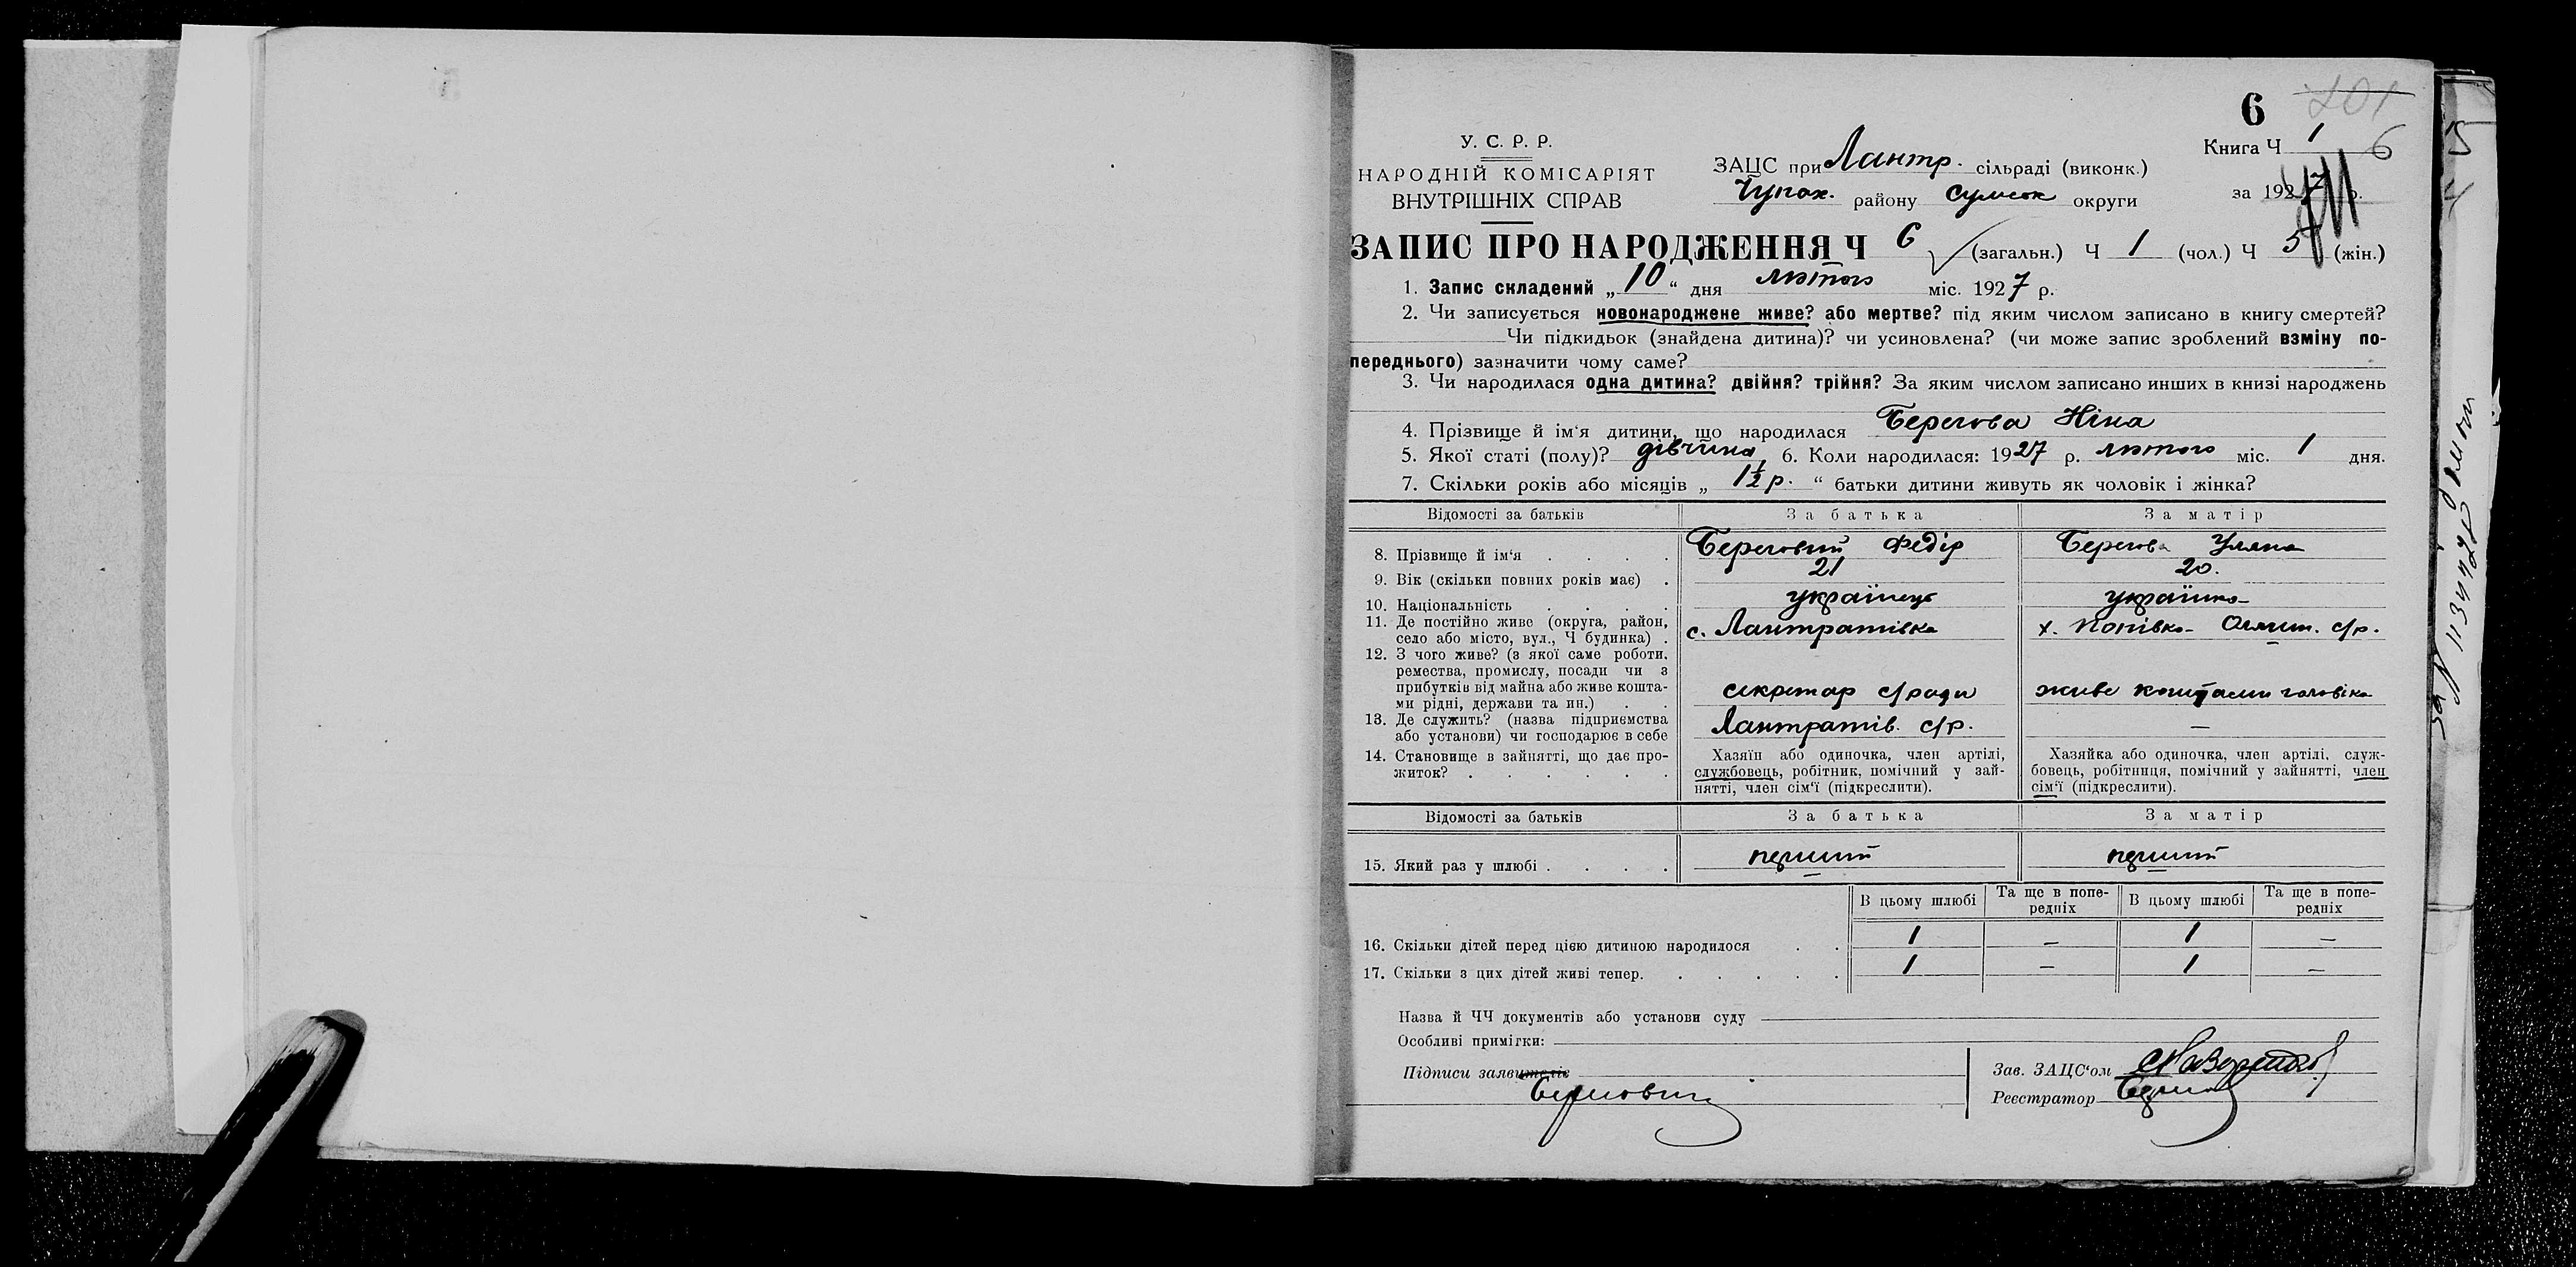 6 201
У. С. Р. Р.
НАРОДНІЙ КОМІСАРІЯТ
ВНУТРІШНІХ СПРАВ
ЗАЦС при Лантр. сільраді (виконк.)
Чупах. району Сумськ округи
Книга Ч 1 6
за 1927 р.
ЗАПИС ПРО НАРОДЖЕННЯ Ч 6 (загальн.) Ч 1 (чол.) Ч 5 (жін.)
1. Запис складений „ 10 “ дня лютого міс. 1927 р.
2. Чи записується новонароджене живе? або мертве? під яким числом записано в книгу смертей?
Чи підкидьок (знайдена дитина)? чи усиновлена? (чи може запис зроблений взміну по-
переднього) зазначити чому саме?
3. Чи народилася одна дитина? двійня? трійня? За яким числом записано инших в книзі народжень
4. Прізвище й ім‘я дитини, що народилася Берегова Ніна
5. Якої статі (полу)? дівчина 6. Коли народилася: 1927 р. лютого міс. 1 дня.
7. Скільки років або місяців „ 1½ р. “ батьки дитини живуть як чоловік і жінка?
Відомості за батьків За батька За матір
8. Прізвище й ім‘я . . . . Береговий Федір Берегова Уляна
9. Вік (скільки повних років має) . 21 20.
10. Національність . . . . українець українка
11. Де постійно живе (округа, район,
село або місто, вул., Ч будинка) . с. Лантратівка х. Попівка с/р.
12. З чого живе? (з якої саме роботи,
ремества, промислу, посади чи з
прибутків від майна або живе кошта-
ми рідні, держави та ин.) . . секретар с/ради живе коштами чоловіка
13. Де служить? (назва підприємства
або установи) чи господарює в себе Лантратів. с/р. —
14. Становище в зайнятті, що дає про-
житок? . . . . . .
Хазяїн або одиночка, член артілі,
службовець, робітник, помічний у зай-
нятті, член сім‘ї (підкреслити).
Хазяйка або одиночка, член артілі, служ-
бовець, робітниця, помічний у зайнятті, член
сім‘ї (підкреслити).
Відомості за батьків За батька За матір
15. Який раз у шлюбі . . . . перший перший
В цьому шлюбі Та ще в попе-
редніх В цьому шлюбі Та ще в попе-
редніх
16. Скільки дітей перед цією дитиною народилося . . 1 — 1 —
17. Скільки з цих дітей живі тепер. . . . . . 1 — 1 —
Назва й ЧЧ документів або установи суду
Особливі примітки:
Підписи заявителів
Береговий
Зав. ЗАЦС‘ом
Реєстратор